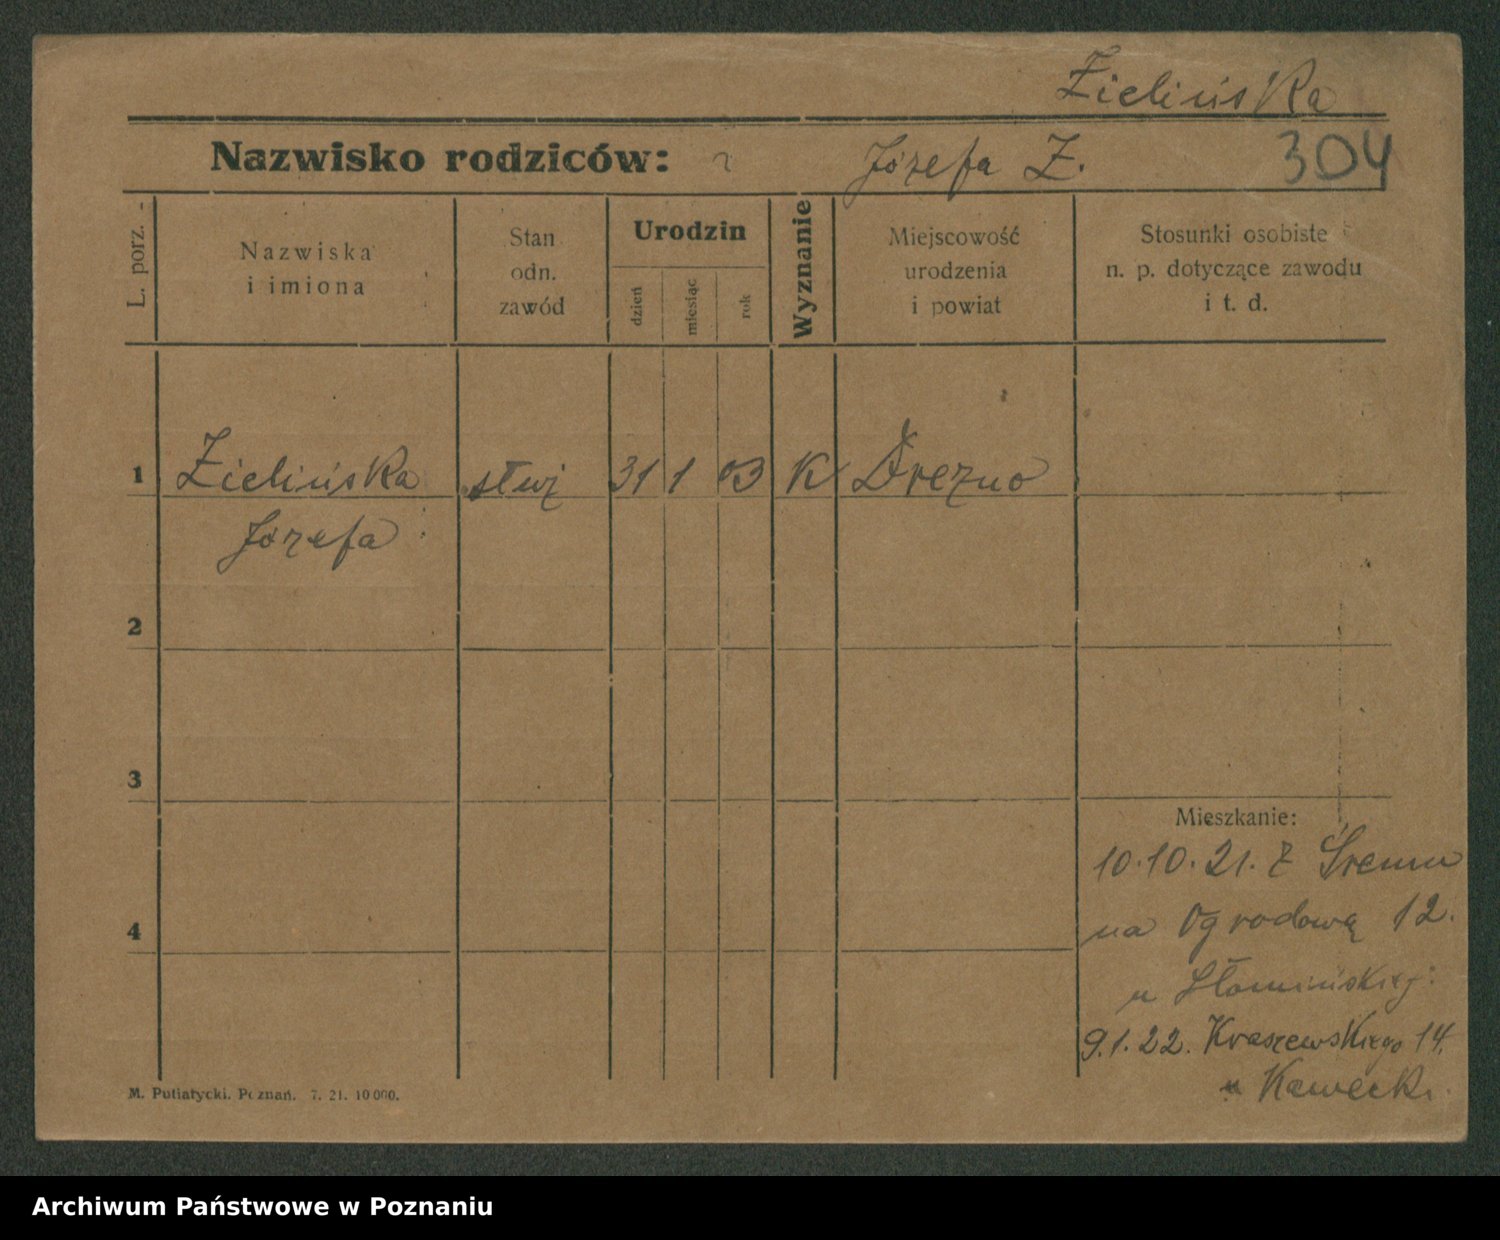 Zielińska
Nazwisko rodziców: Józefa Z. 304
L. porz.
Nazwiska
i imiona
Stan
odn.
zawód
Urodzin
dzień
miesiąc
rok
Wyznanie
Miejscowość
urodzenia
i powiat
Stosunki osobiste
n. p. dotyczące zawodu
i t. d.
1 Zielińska służ 31 1 03 K Drezno
Józefa
2
3
Mieszkanie:
10.10.21. z Śremu
na Ogrodową 12.
4
u Słomińskiej:
9.1.22. Kraszewskiego 14.
u Kawecki.
M. Putiatycki. Poznań. 7. 21. 10 000.
Archiwum Państwowe w Poznaniu